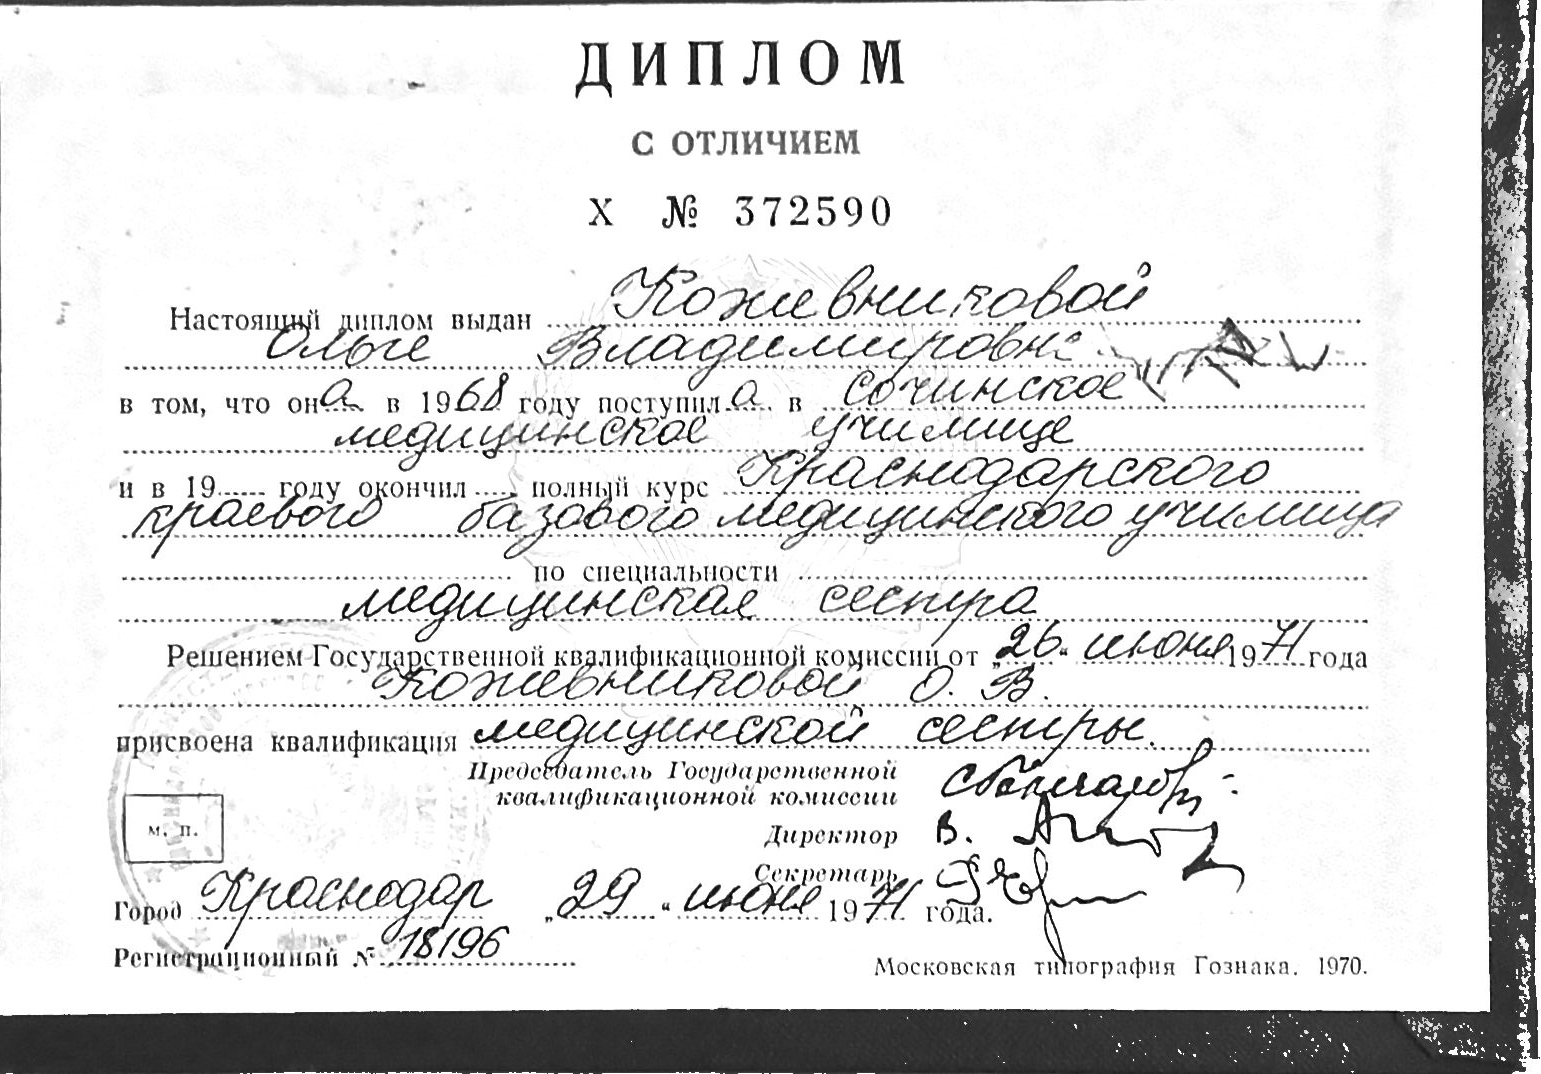 ДИПЛОМ
С ОТЛИЧИЕМ
X № 372590
Настоящий диплом выдан Кожевниковой
Ольге Владимировне
в том, что она в 1968 году поступила в Сочинское
медицинское училище
и в 19 году окончил полный курс Краснодарского
краевого базового медицинского училища
по специальности
медицинская сестра
Решением Государственной квалификационной комиссии от „26“ июня 1971 года
Кожевниковой О. В.
присвоена квалификация медицинской сестры.
Председатель Государственной
квалификационной комиссии
м. п.
Директор В.
Секретарь
Город Краснодар „29“ июня 1971 года.
Регистрационный № 18196
Московская типография Гознака. 1970.